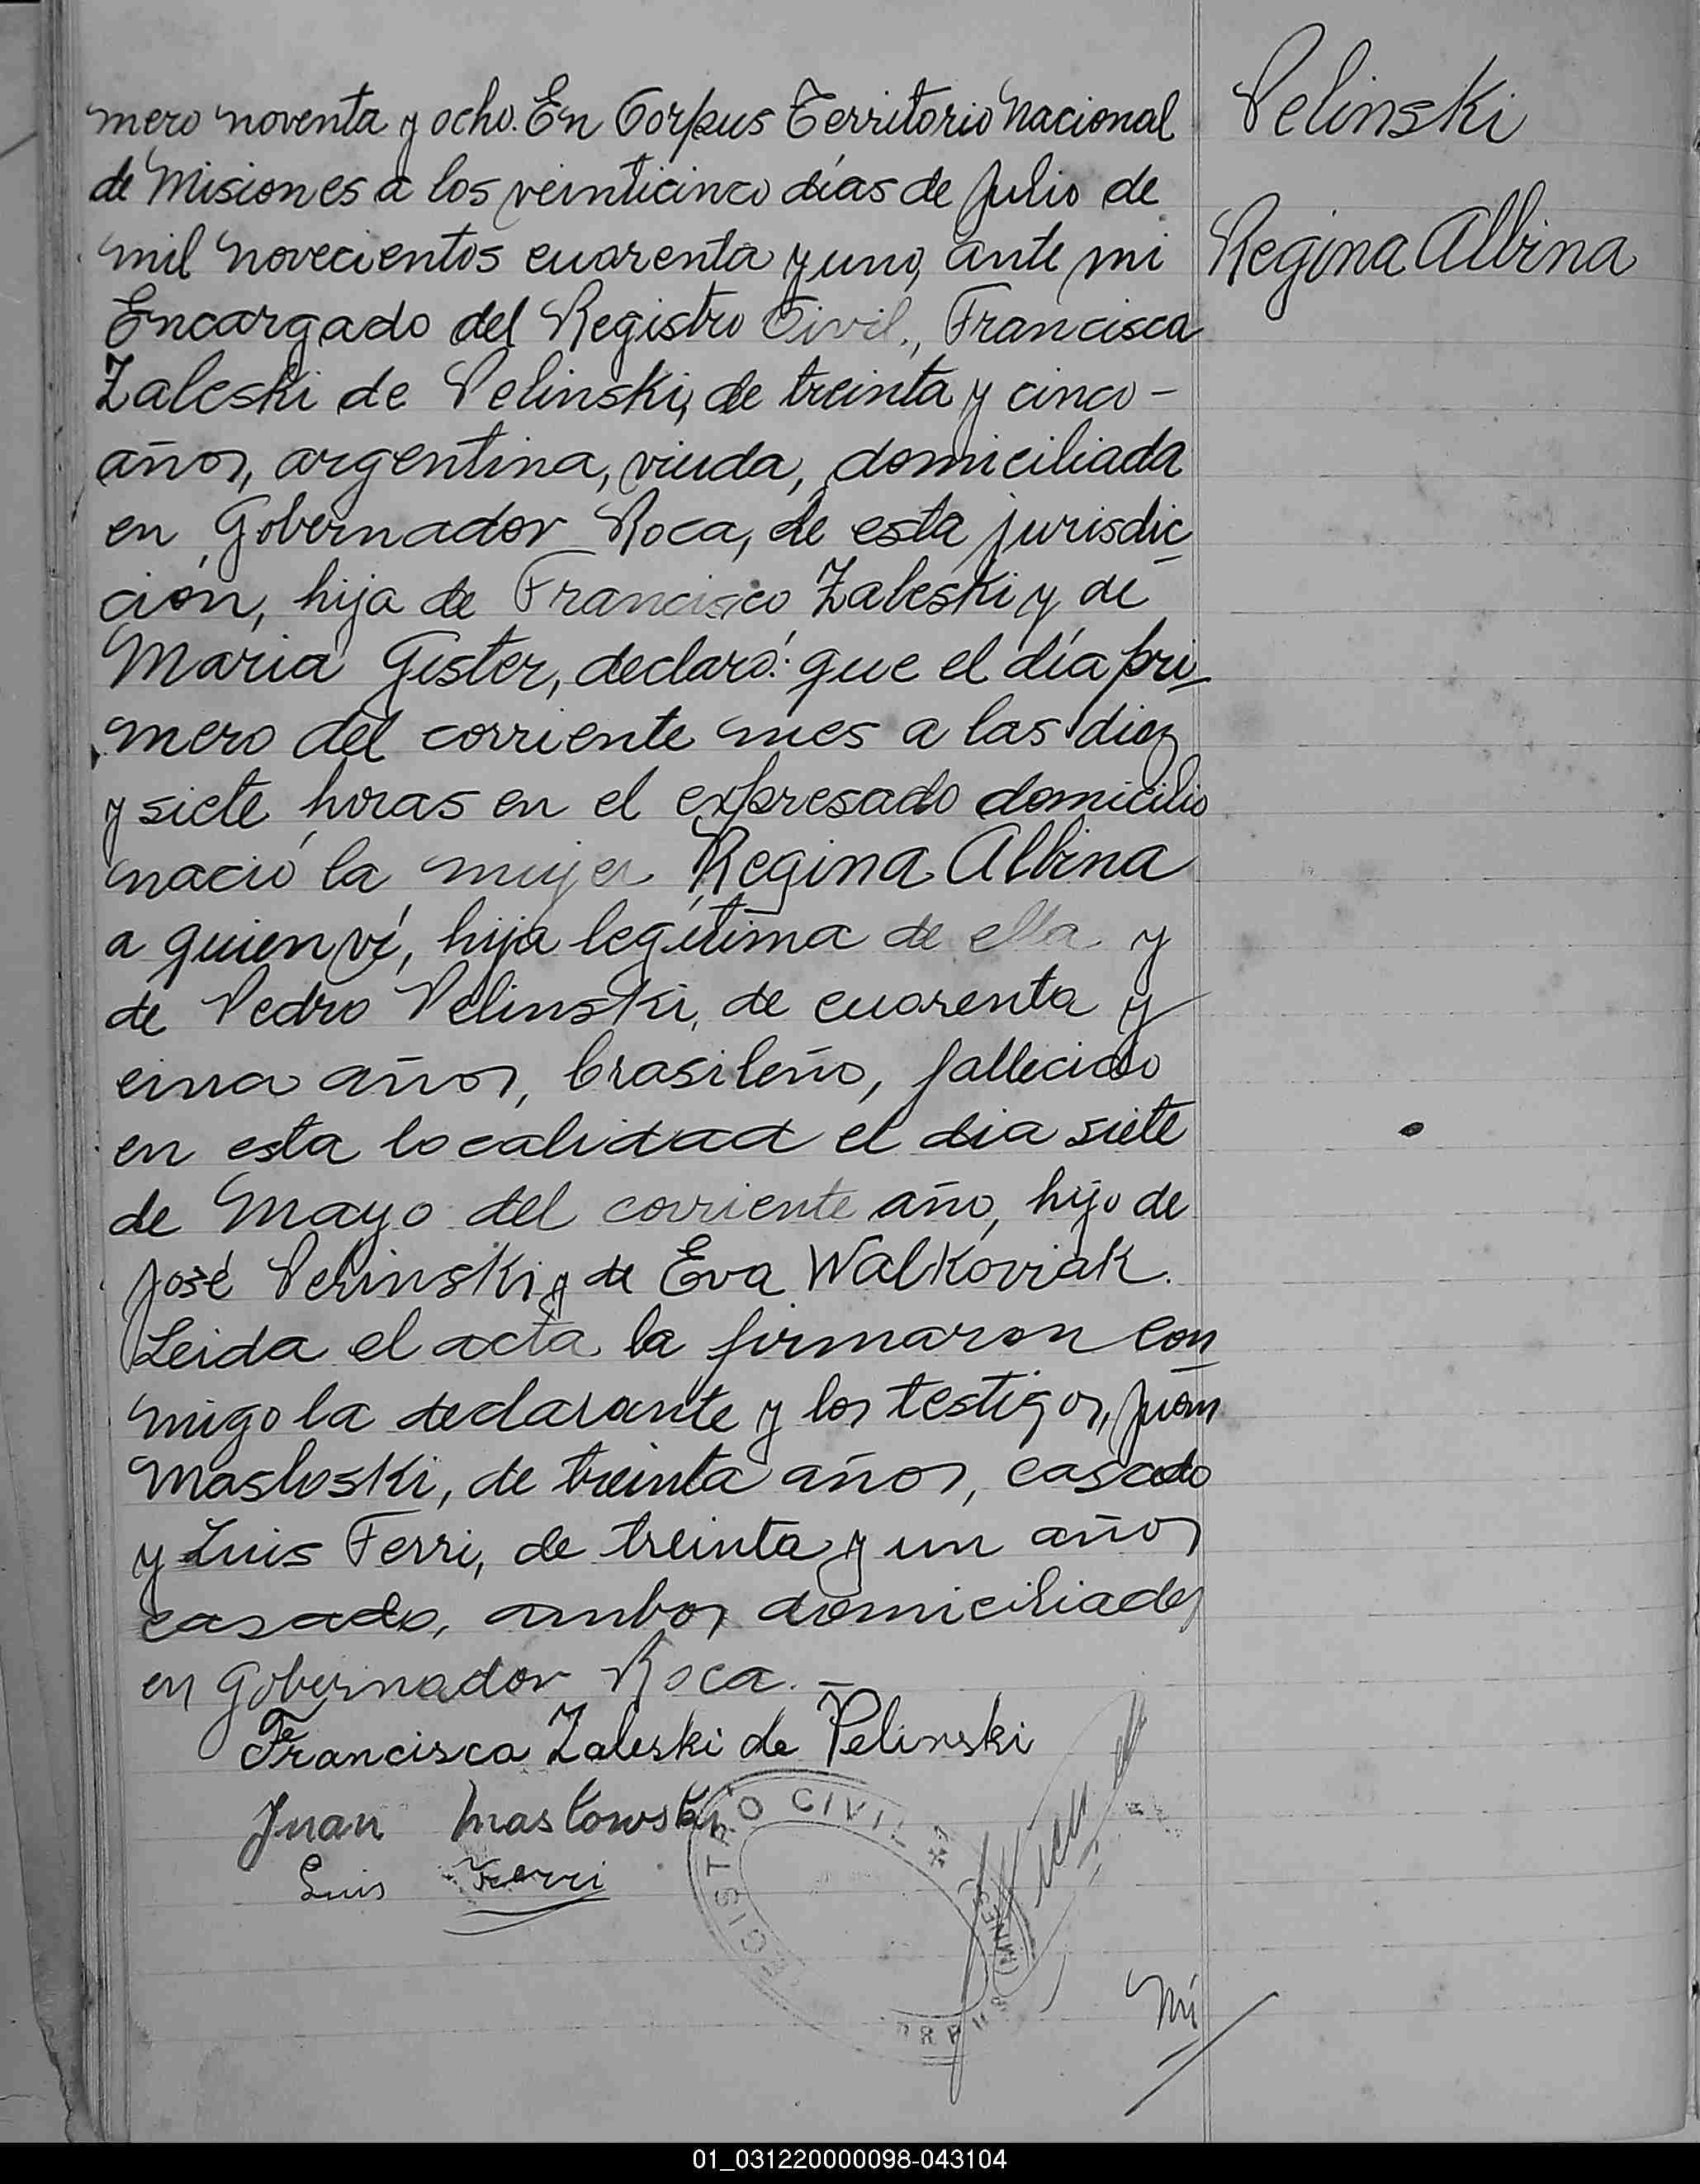 mero noventa y ocho. En Corpus Territorio Nacional
de Misiones a los veinticinco días de Julio de
mil novecientos cuarenta y uno, ante mi
Encargado del Registro Civil., Francisca
Zaleski de Pelinski, de treinta y cinco -
años, argentina, viuda, domiciliada
en Gobernador Roca, de esta jurisdic
ción, hija de Francisco Zaleski y de
Maria Gister, declaró: que el día pri-
mero del corriente mes a las diez
y siete horas en el expresado domicilio
nació la mujer Regina Albina
a quien ví, hija legítima de ella y
de Pedro Pelinski, de cuarenta y
cinco años, brasileño, fallecido
en esta localidad el dia siete
de Mayo del corriente año, hijo de
José Pelinski y de Eva Walkoviak.
Leida el acta la firmaron con
migo la declarante y los testigos, Juan
Masloski, de treinta años, casado
y Luis Ferri, de treinta y un años
casado, ambos domiciliados
en Gobernador Roca. -
Francisca Zaleski de Pelinski
Juan Mastowski
Luis Ferri
REGISTRO CIVIL
Pelinski
Regina Albina
01_031220000098-043104